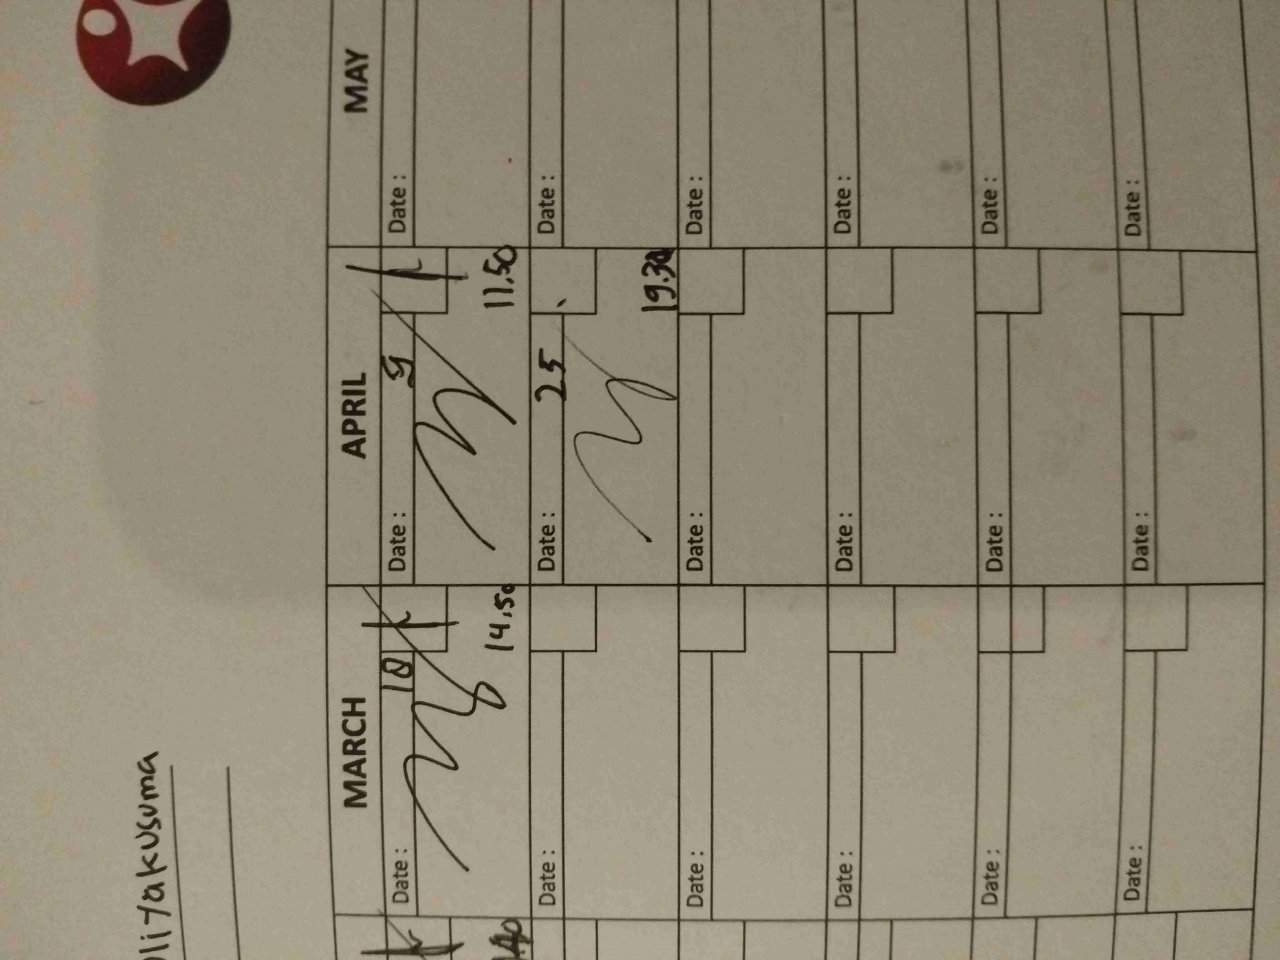 MARCH APRIL MAY
Date : 18 Date : 9 Date :
14.50 11.50
Date : Date : 25 Date :
19.30
Date : Date : Date :
Date : Date : Date :
Date : Date : Date :
Date : Date : Date :